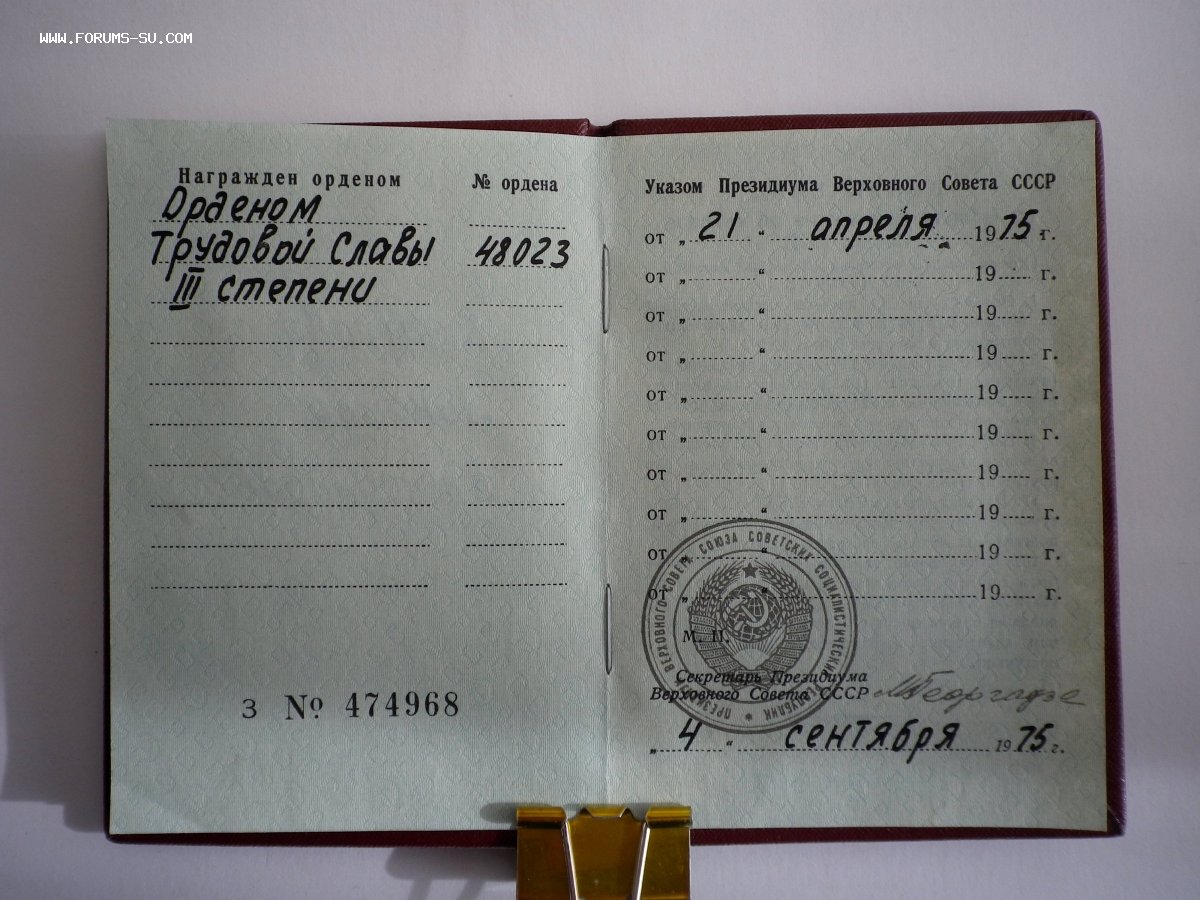 www.forums-su.com
Награжден орденом № ордена
Орденом
Трудовой Славы 48023
III степени
З № 474968
Указом Президиума Верховного Совета СССР
от „ 21 “ апреля 1975 г.
от „ “ 19 г.
от „ “ 19 г.
от „ “ 19 г.
от „ “ 19 г.
от „ “ 19 г.
от „ “ 19 г.
от „ “ 19 г.
от „ “ 19 г.
от „ “ 19 г.
ПРЕЗИДИУМ ВЕРХОВНОГО СОВЕТА СОЮЗА СОВЕТСКИХ СОЦИАЛИСТИЧЕСКИХ РЕСПУБЛИК
М. П.
Секретарь Президиума
Верховного Совета СССР МГеоргадзе
„ 4 “ сентября 1975 г.